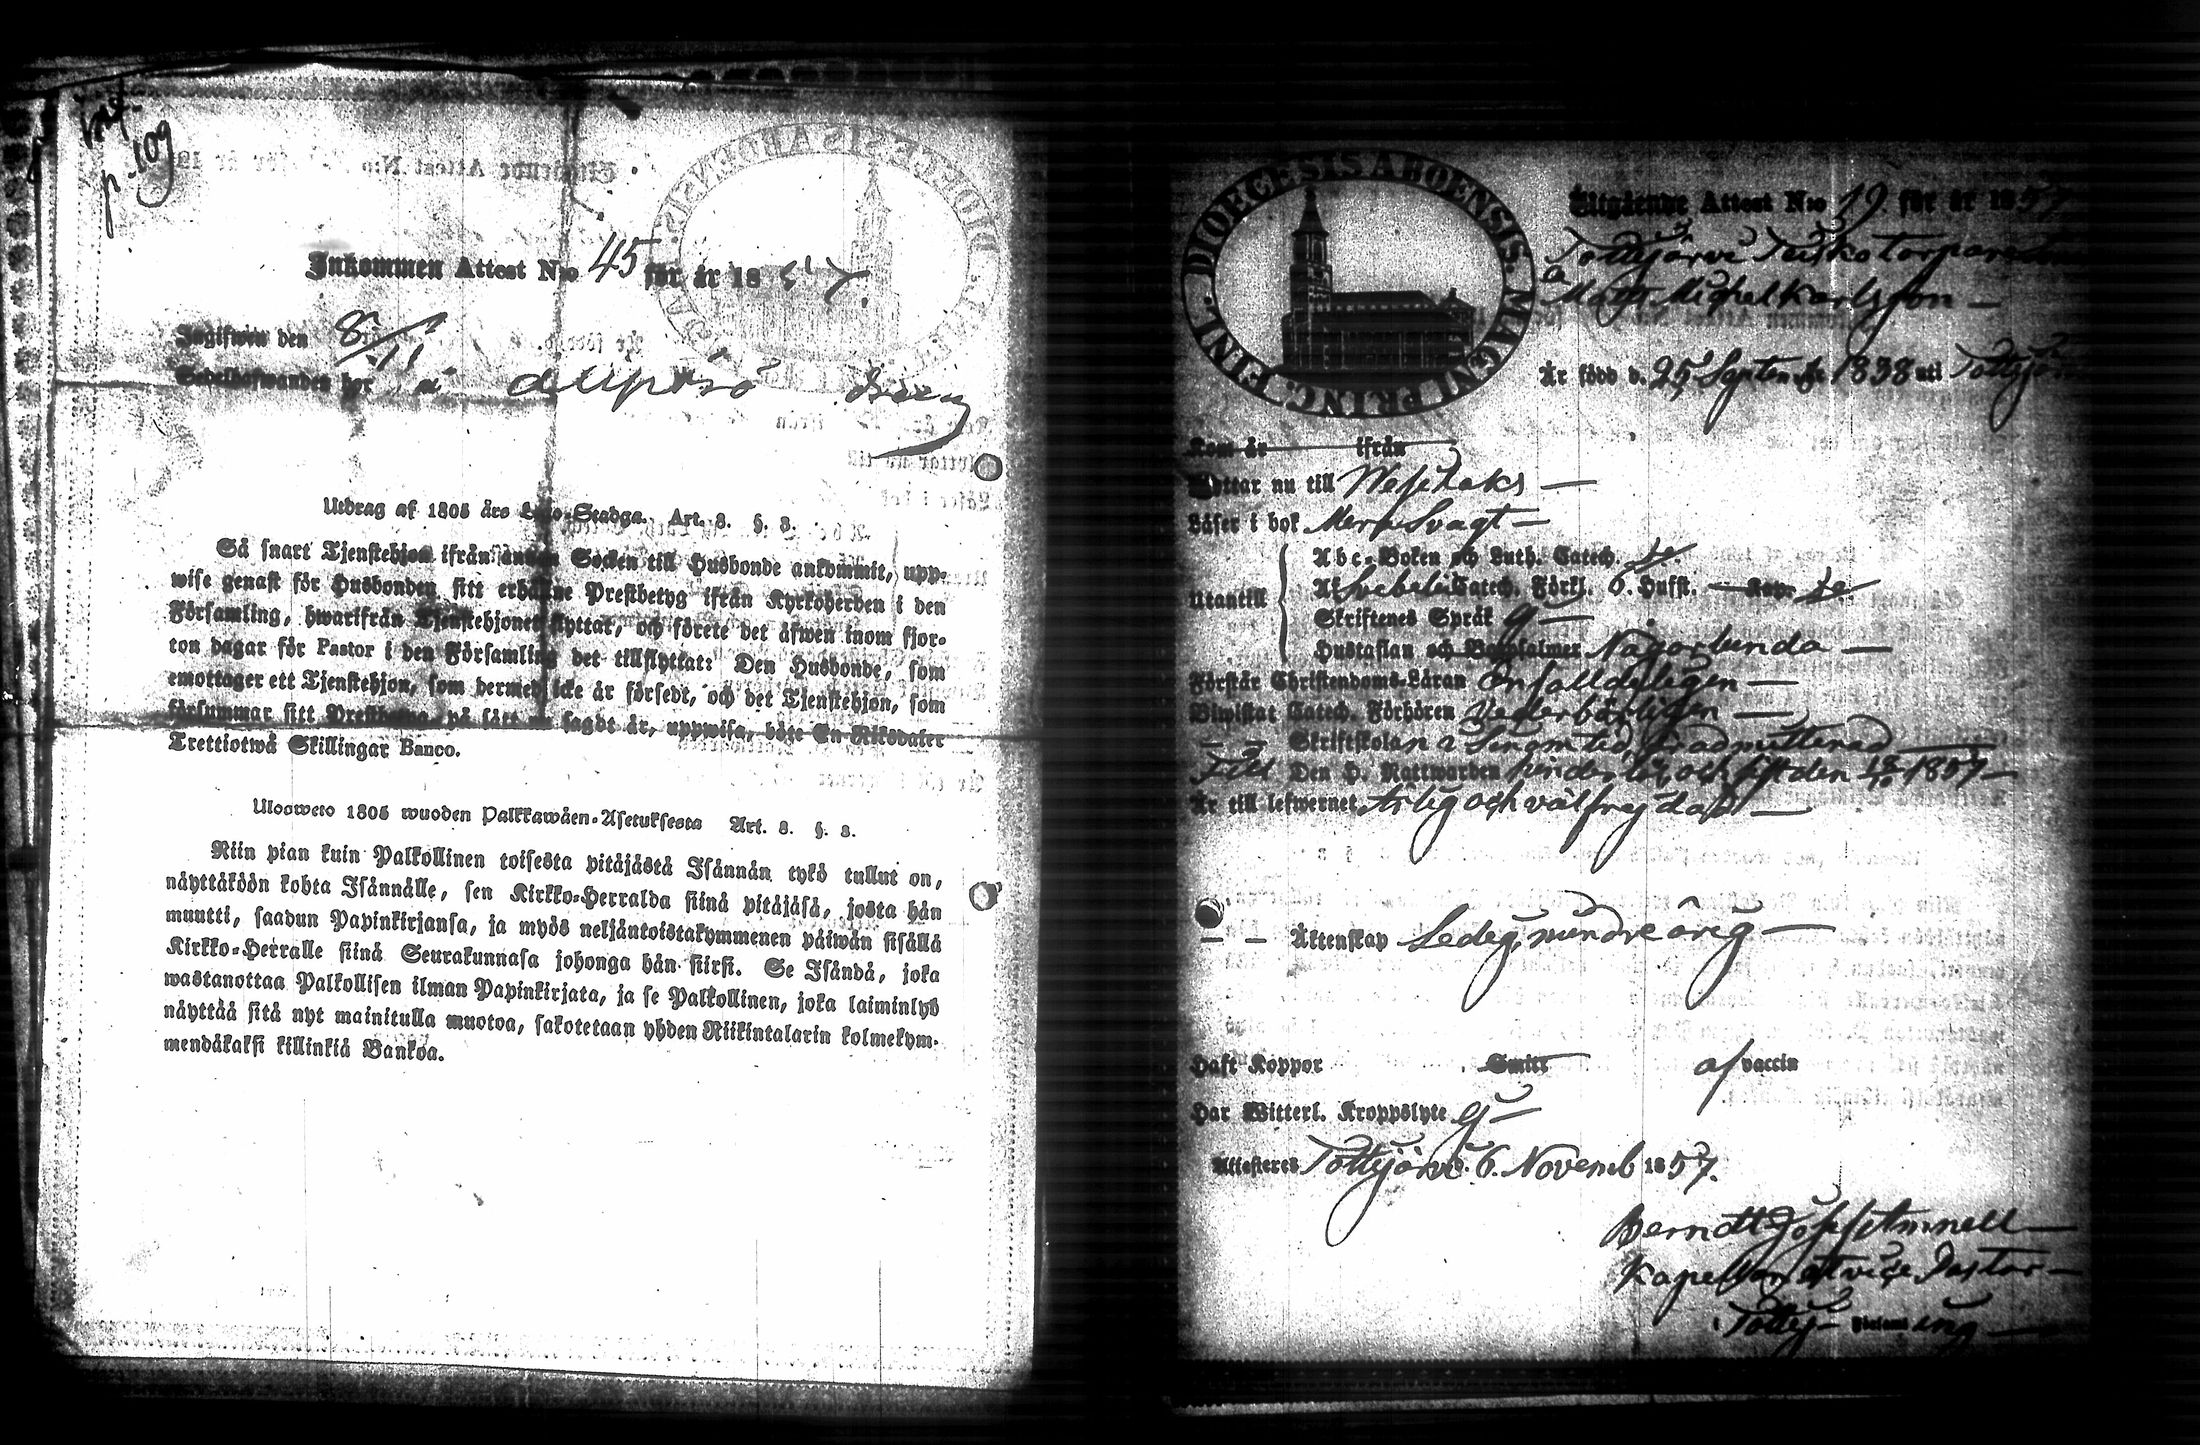 p. 109
Inkommen Attest N:o 45 för år 1857.
Ingifwen den 8/11
Sedelhafwandes bor
Utdrag af 1805 års Lego-Stadga. Art. 8. §. 3.
Så snart Tjenstehjon ifrån annan Socken till Husbonde ankommit, upp-
wise genast för Husbonden sitt erhållne Prestbetyg ifrån Kyrkoherden i den
Församling, hwarifrån Tjenstehjonet flyttat, och förete det äfwen inom fjor-
ton dagar för Pastor i den Församling det tillflyttat: Den Husbonde, som
emottager ett Tjenstehjon, som dermed icke är försedt, och det Tjenstehjon, som
försummar sitt Prestbetyg, på sätt nu sagdt är, uppwisa, böte En Riksdaler
Trettiotwå Skillingar Banco.
Ulosweto 1805 wuoden Palkkawäen-Asetuksesta Art. 8. §. 3.
Niin pian kuin Palkollinen toisesta pitäjästä Isännän tykö tullut on,
näyttäköön kohta Isännälle, sen Kirkko-Herralda siinä pitäjäsä, josta hän
muutti, saadun Papinkirjansa, ja myös neljäntoistakymmenen päiwän sisällä
Kirkko-Herralle siinä Seurakunnasa johonga hän siirsi. Se Isändä, joka
wastanottaa Palkollisen ilman Papinkirjata, ja se Palkollinen, joka laiminlyö
näyttää sitä nyt mainitulla muotoa, sakotetaan yhden Riikintalarin kolmekym-
mendäkaksi killinkiä Bankoa.
FINL. DIOECESIS ABOENSIS. MAGNI PRINC.
Utgående Attest N:o 19. för år 1857
Tottijärvi Torpare
Mats Michel Karlsson —
Är född d. 25 Septembr 1838 uti Tottijärvi
Kom år ifrån
Flyttar nu till Wesilaks —
Läser i bok Mer Svagt —
Utantill
Abc-Boken och Luth. Catech.
Af Svebelii Catech. Förkl. 6. Hufst. — Kap.
Skriftenes Språk ej —
Hustaflan och Botpsalmer Någorlunda —
Förstår Christendoms-Läran Enfalldeligen —
Biwistat Catech. Förhören Vederbörligen —
— — Skriftskolan
Den H. Nattwarden och sist den 1857 —
Är till lefwernet Ärlig och väl frejdad —
— — Äktenskap Ledig, mindre årig —
Haft Koppor Smitt af vaccin
Har Witterl. Kroppslyte ej —
Attesteres Tottijärvi d. 6. Novemb 1857.
Berndt Amnell —
Kapellan et vice Pastor —
i Tottij